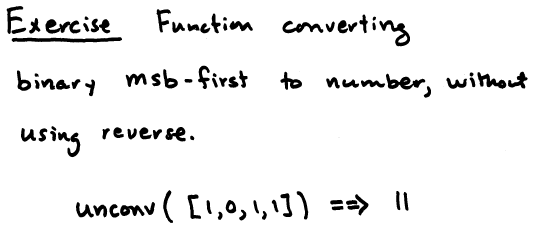 Exercise Function converting
binary msb-first to number, without
using reverse.
unconv( [1,0,1,1]) ==> 11